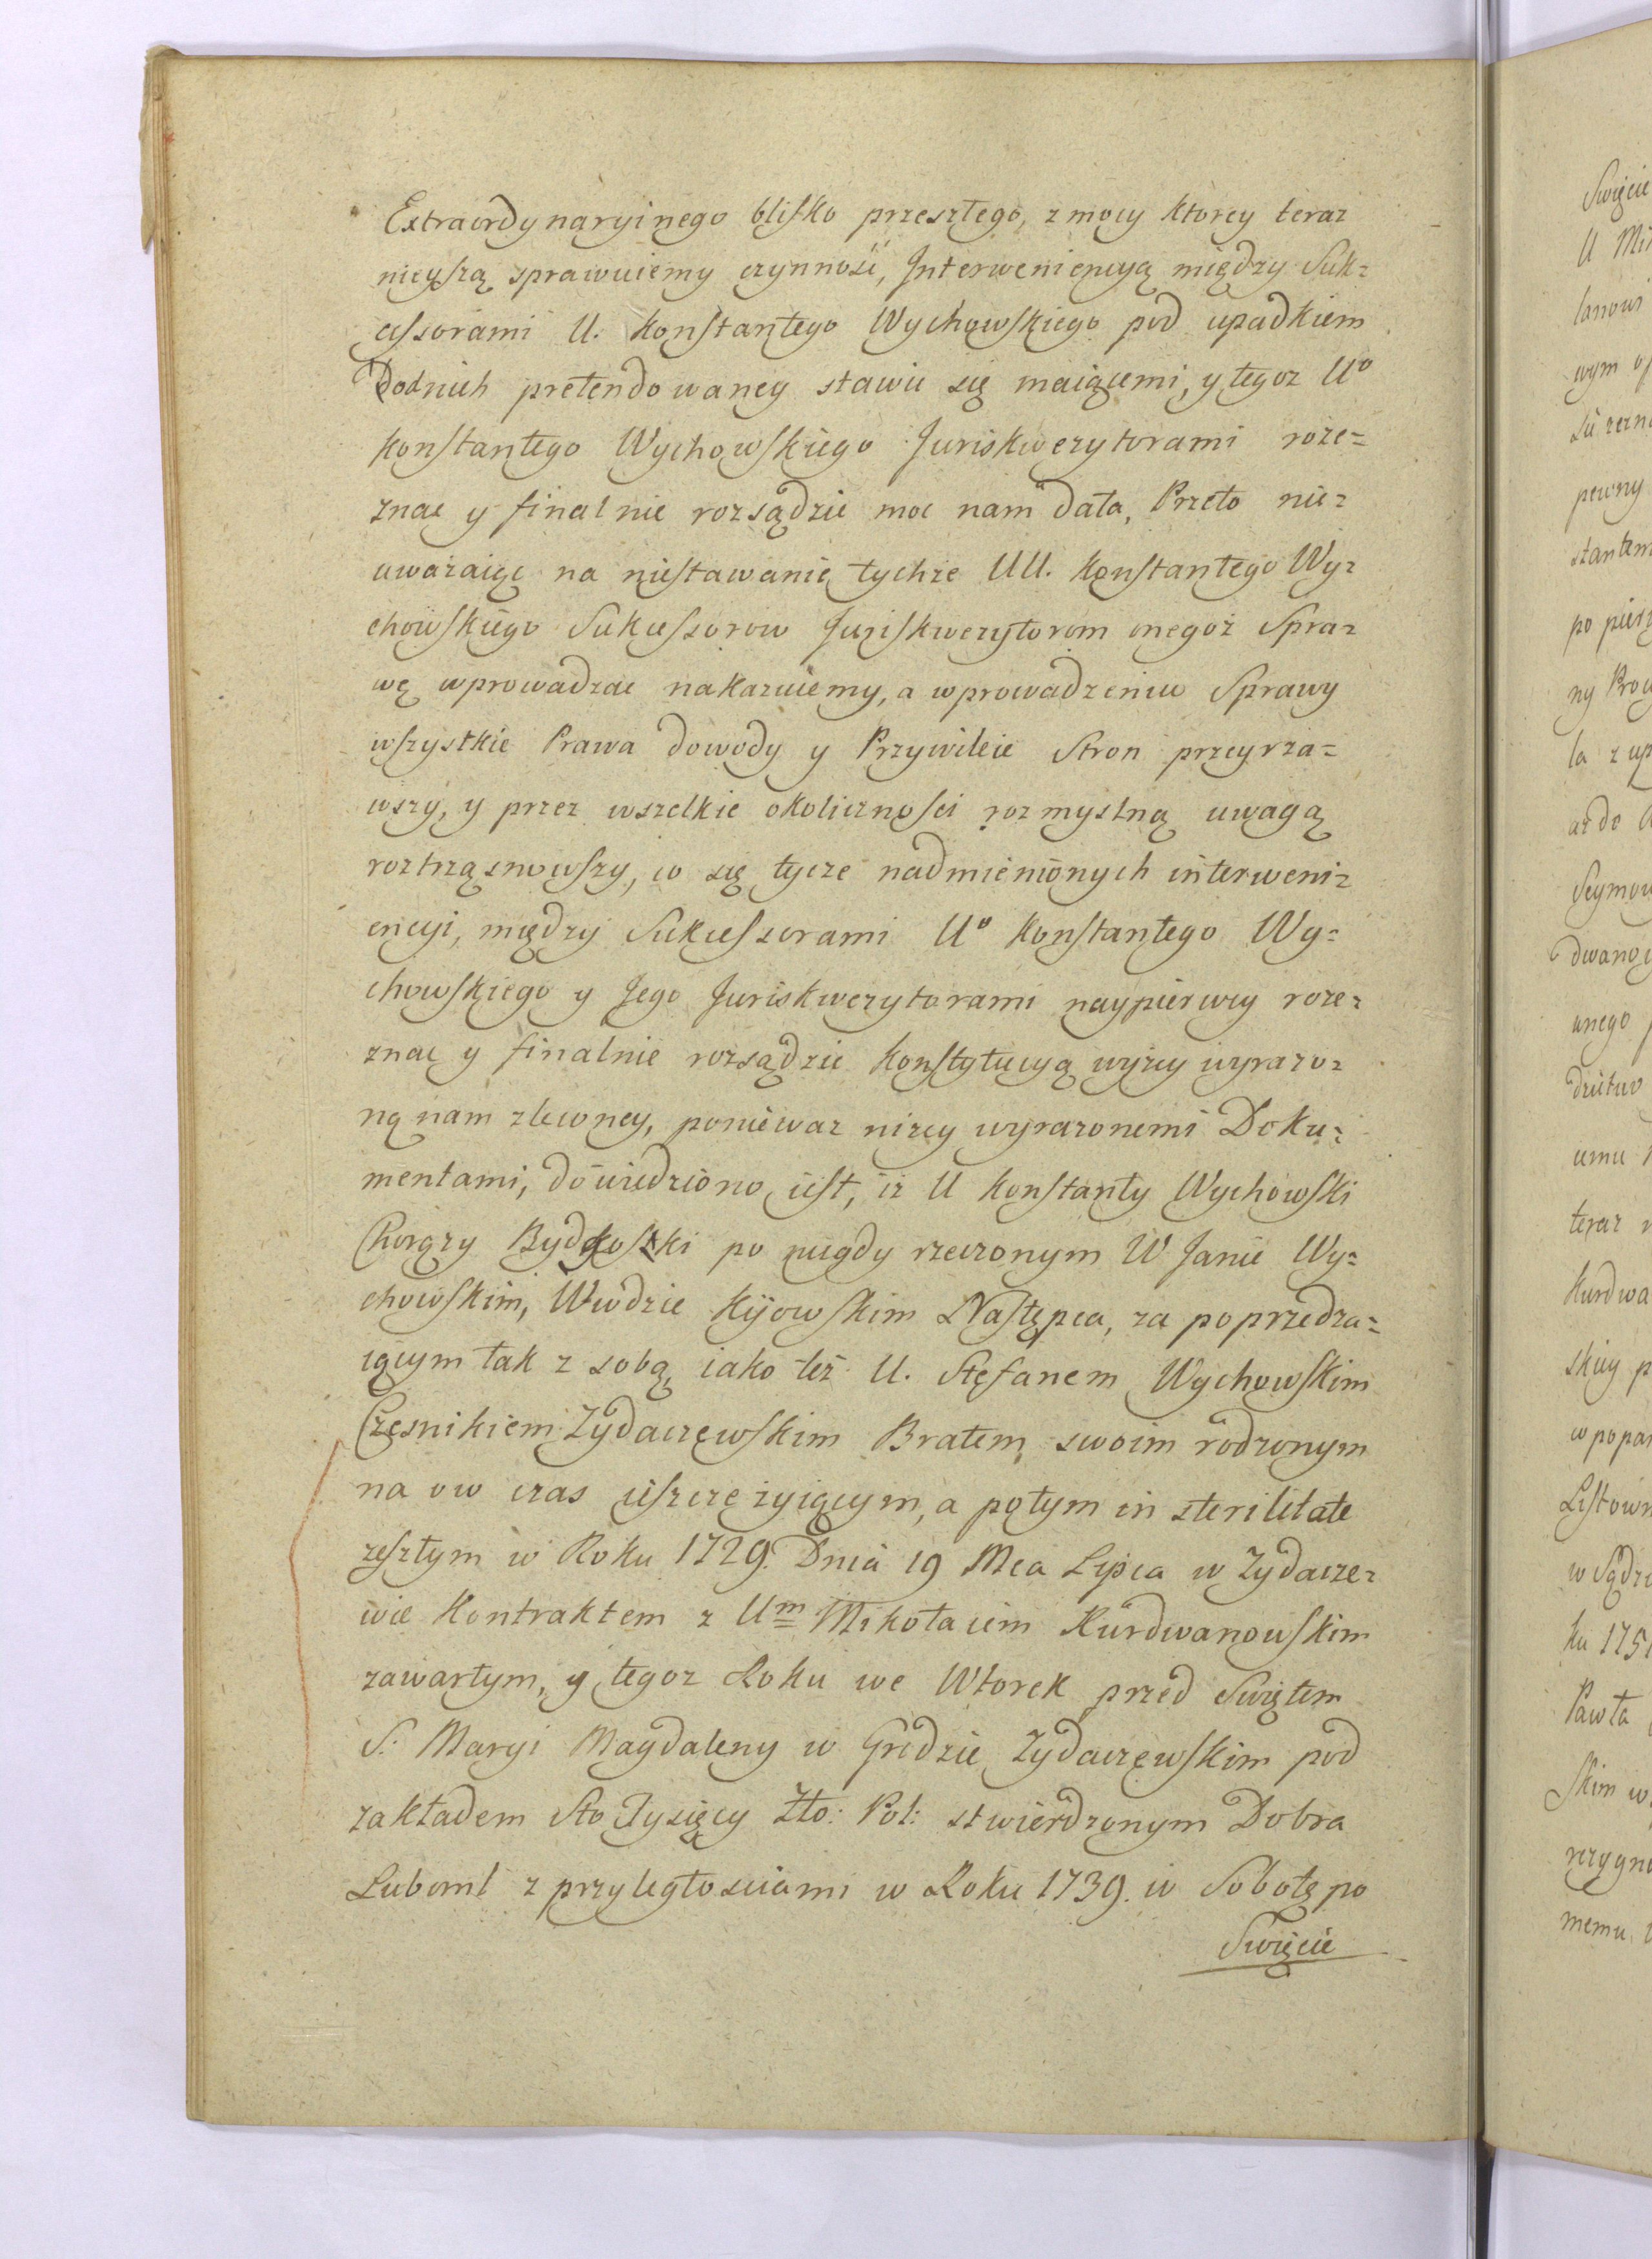 Extraordynaryinego blisko przeszłego, z mocy ktorey teraz
nieyszą sprawuiemy czynność, Interweniencyą między Suk=
cessorami U. Konstantego Wychowskiego pod upadkiem
Dodnich pretendowaney stawić się maiącemi, y tegoz U°
Konstantego Wychowskiego Juriskwezytorami roze=
znac y finalnie rozsądzić moc nam dała, Przeto nie=
uwazaiąc na niestawanie tychze UU. Konstantego Wy=
chowskiego Sukcessorow Juriskwezytorom onegoż Spra=
wę wprowadzac nakazuiemy, a wprowadzeniu Sprawy
wszystkie Prawa dowody y Przywileie Stron przeyrza=
wszy, y przez wszelkie okoliczności rozmyslną uwagą
roztrząsnowszy, co się tycze nadmienionych interweni=
encyi, między Sukcessorami U° Konstantego Wy=
chowskiego y Jego Juriskwezytorami naypierwey roze=
znac y finalnie rozsądzic Konstytucyą wyżey wyrazo=
ną nam zleconey, poniewaz niżey wyrazonemi Doku=
mentami, dowiedziono iest, iz U Konstanty Wychowski
Chorązy Bydgoski po niegdy rzeczonym W Janie Wy=
chowskim, Wwdzie Kijowskim Następca, za poprzedza=
iącym tak z sobą, iako też U. Stefanem Wychowskim
Czesnikiem Zydaczewskim Bratem swoim rodzonym
na ow czas ieszcze zyiącym, a potym in sterilitate
zeszłym w Roku 1729. Dnia 19 Mca Lipca w Zydacze=
wie Kontraktem z Um Mikołaiem Kurdwanowskim
zawartym, y tegoz Roku we Wtorek przed Swiętem
S: Maryi Magdaleny w Grodzie Zydaczewskim pod
zakładem Sto Tysięcy Zło: Pol: stwierdzonym Dobra
Luboml z przyległosciami w Roku 1739. w Sobotę po
Swięcie
Swięcie
U
lanowi
wym
pewny
ny
la z
az do
unego
umu
teraz
Kurdwa
skiey
w
ku 175
Pawła
skim w
memu